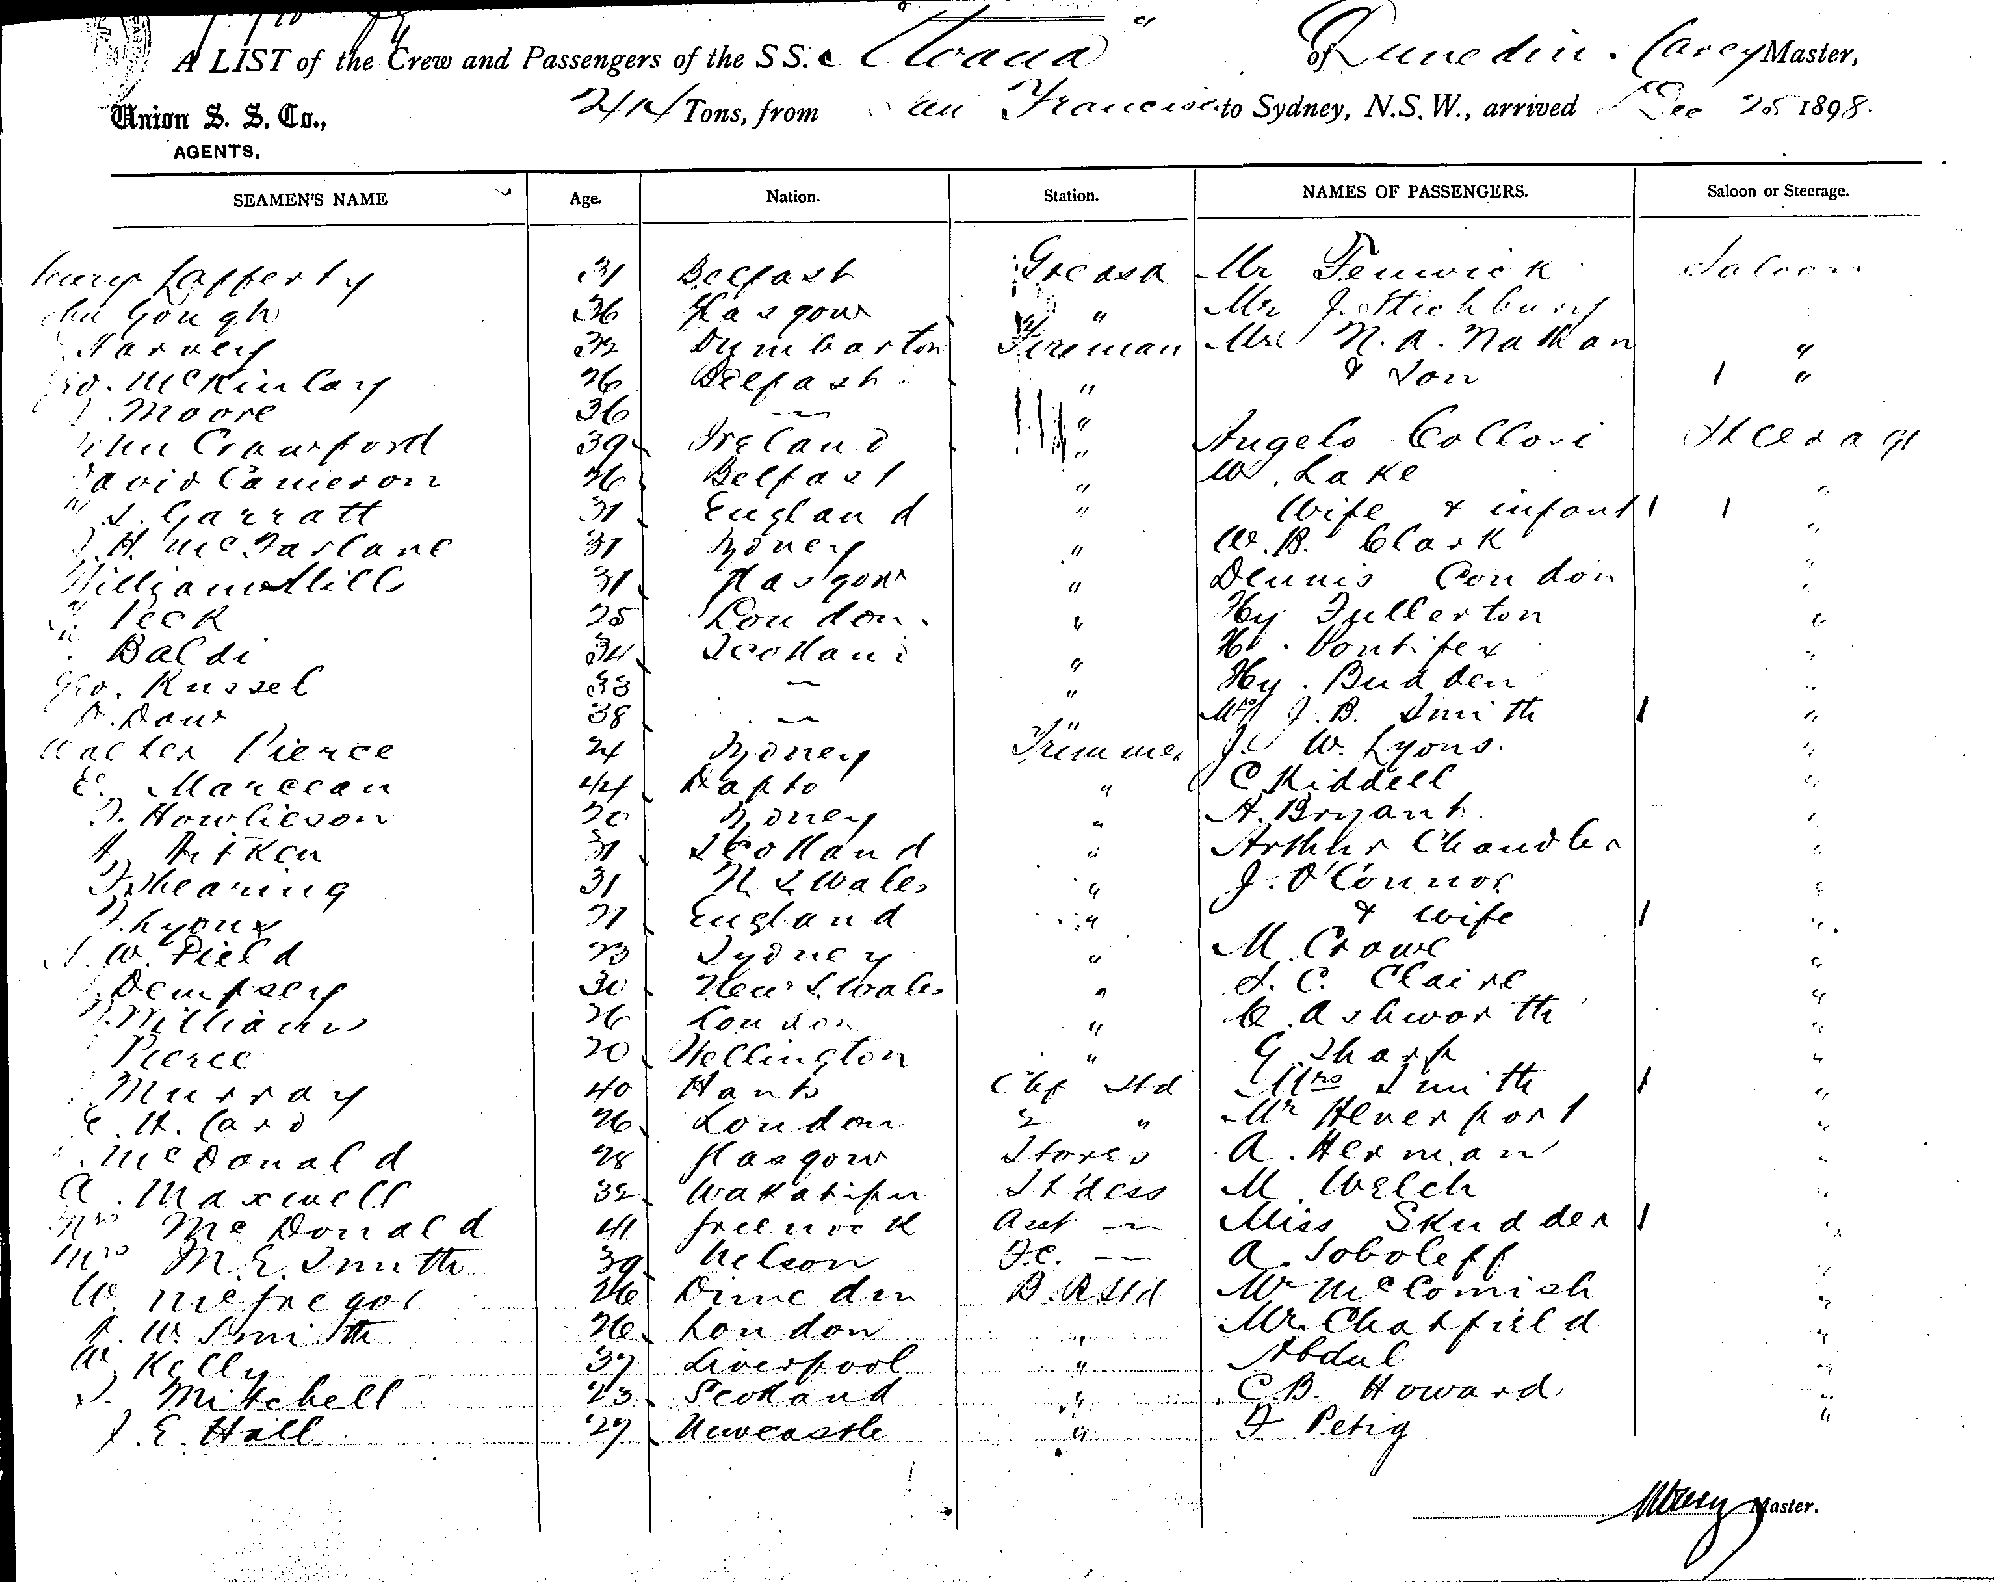 A LIST of the Crew and Passengers of the S.S. "Moana" of Dunedin. Carey Master,
Union S. S. Co., 2414 Tons, from San Francisco to Sydney, N.S.W., arrived Dec 25 1898.
AGENTS,
SEAMEN'S NAME Age. Nation. Station. NAMES OF PASSENGERS. Saloon or Steerage.
Lafferty 31 Belfast Greaser Mr Fenwick Saloon
Gough 36 Glasgow " Mr J. Stichbury
Harvey 32 Dumbarton Fireman Mr N. A. Nathan "
Geo. McKinlay 26 Belfast " & Son 1 "
Moore 36 — "
John Crawford 39 Ireland " Angelo Collori Steerage
David Cameron 26 Belfast " W. Lake "
S. Garratt 31 England " Wife & infant 1 1 "
H. McFarlane 31 Sydney " W. B. Clark
William Mills 31 Glasgow " Dennis Condon "
Peck 25 London " Hy Fullerton "
Baldi 34 Scotland " H. Pontifex "
Geo. Russel 33 — " Hy. Budden "
D. Dow 38 — " Mrs J. B. Smith 1 "
Walter Pierce 24 Sydney Trimmer J. W. Lyons. "
E. Marcean 44 Dapto " C Riddell "
Howlieson 20 Sydney " A. Bryant "
A. Aitken 31 Scotland " Arthur Chandler "
Shearing 31 N. S. Wales " J. O'Connor "
Lyons 21 England " & Wife 1 "
W. Field 23 Sydney " M. Crowe "
Dempsey 30 New S. Wales " S. C. Claire "
Williams 26 London " C. Ashworth "
Pierce 20 Wellington " G. Sharp "
Murray 40 Hants Chf Std Mrs Smith 1 "
E. H. Card 26 London 2 " Mr Heverport "
McDonald 28 Glasgow Stores A. Herman "
A. Maxwell 32 Wakatipu St'dess M. Welch "
Mrs McDonald 41 Greenock Asst — Miss Skudder 1 "
Mrs M. E. Smith 39 Nelson F.C. — A. Soboleff "
W. McGregor 26 Dunedin B. R Std Mr McComish "
A. W. Smith 26 London " Mr. Chatfield "
W. Kelly 37 Liverpool " Abdul "
D. Mitchell 23 Scotland " C B. Howard "
J. E. Hall 27 Newcastle " F Petig "
MCarey Master.